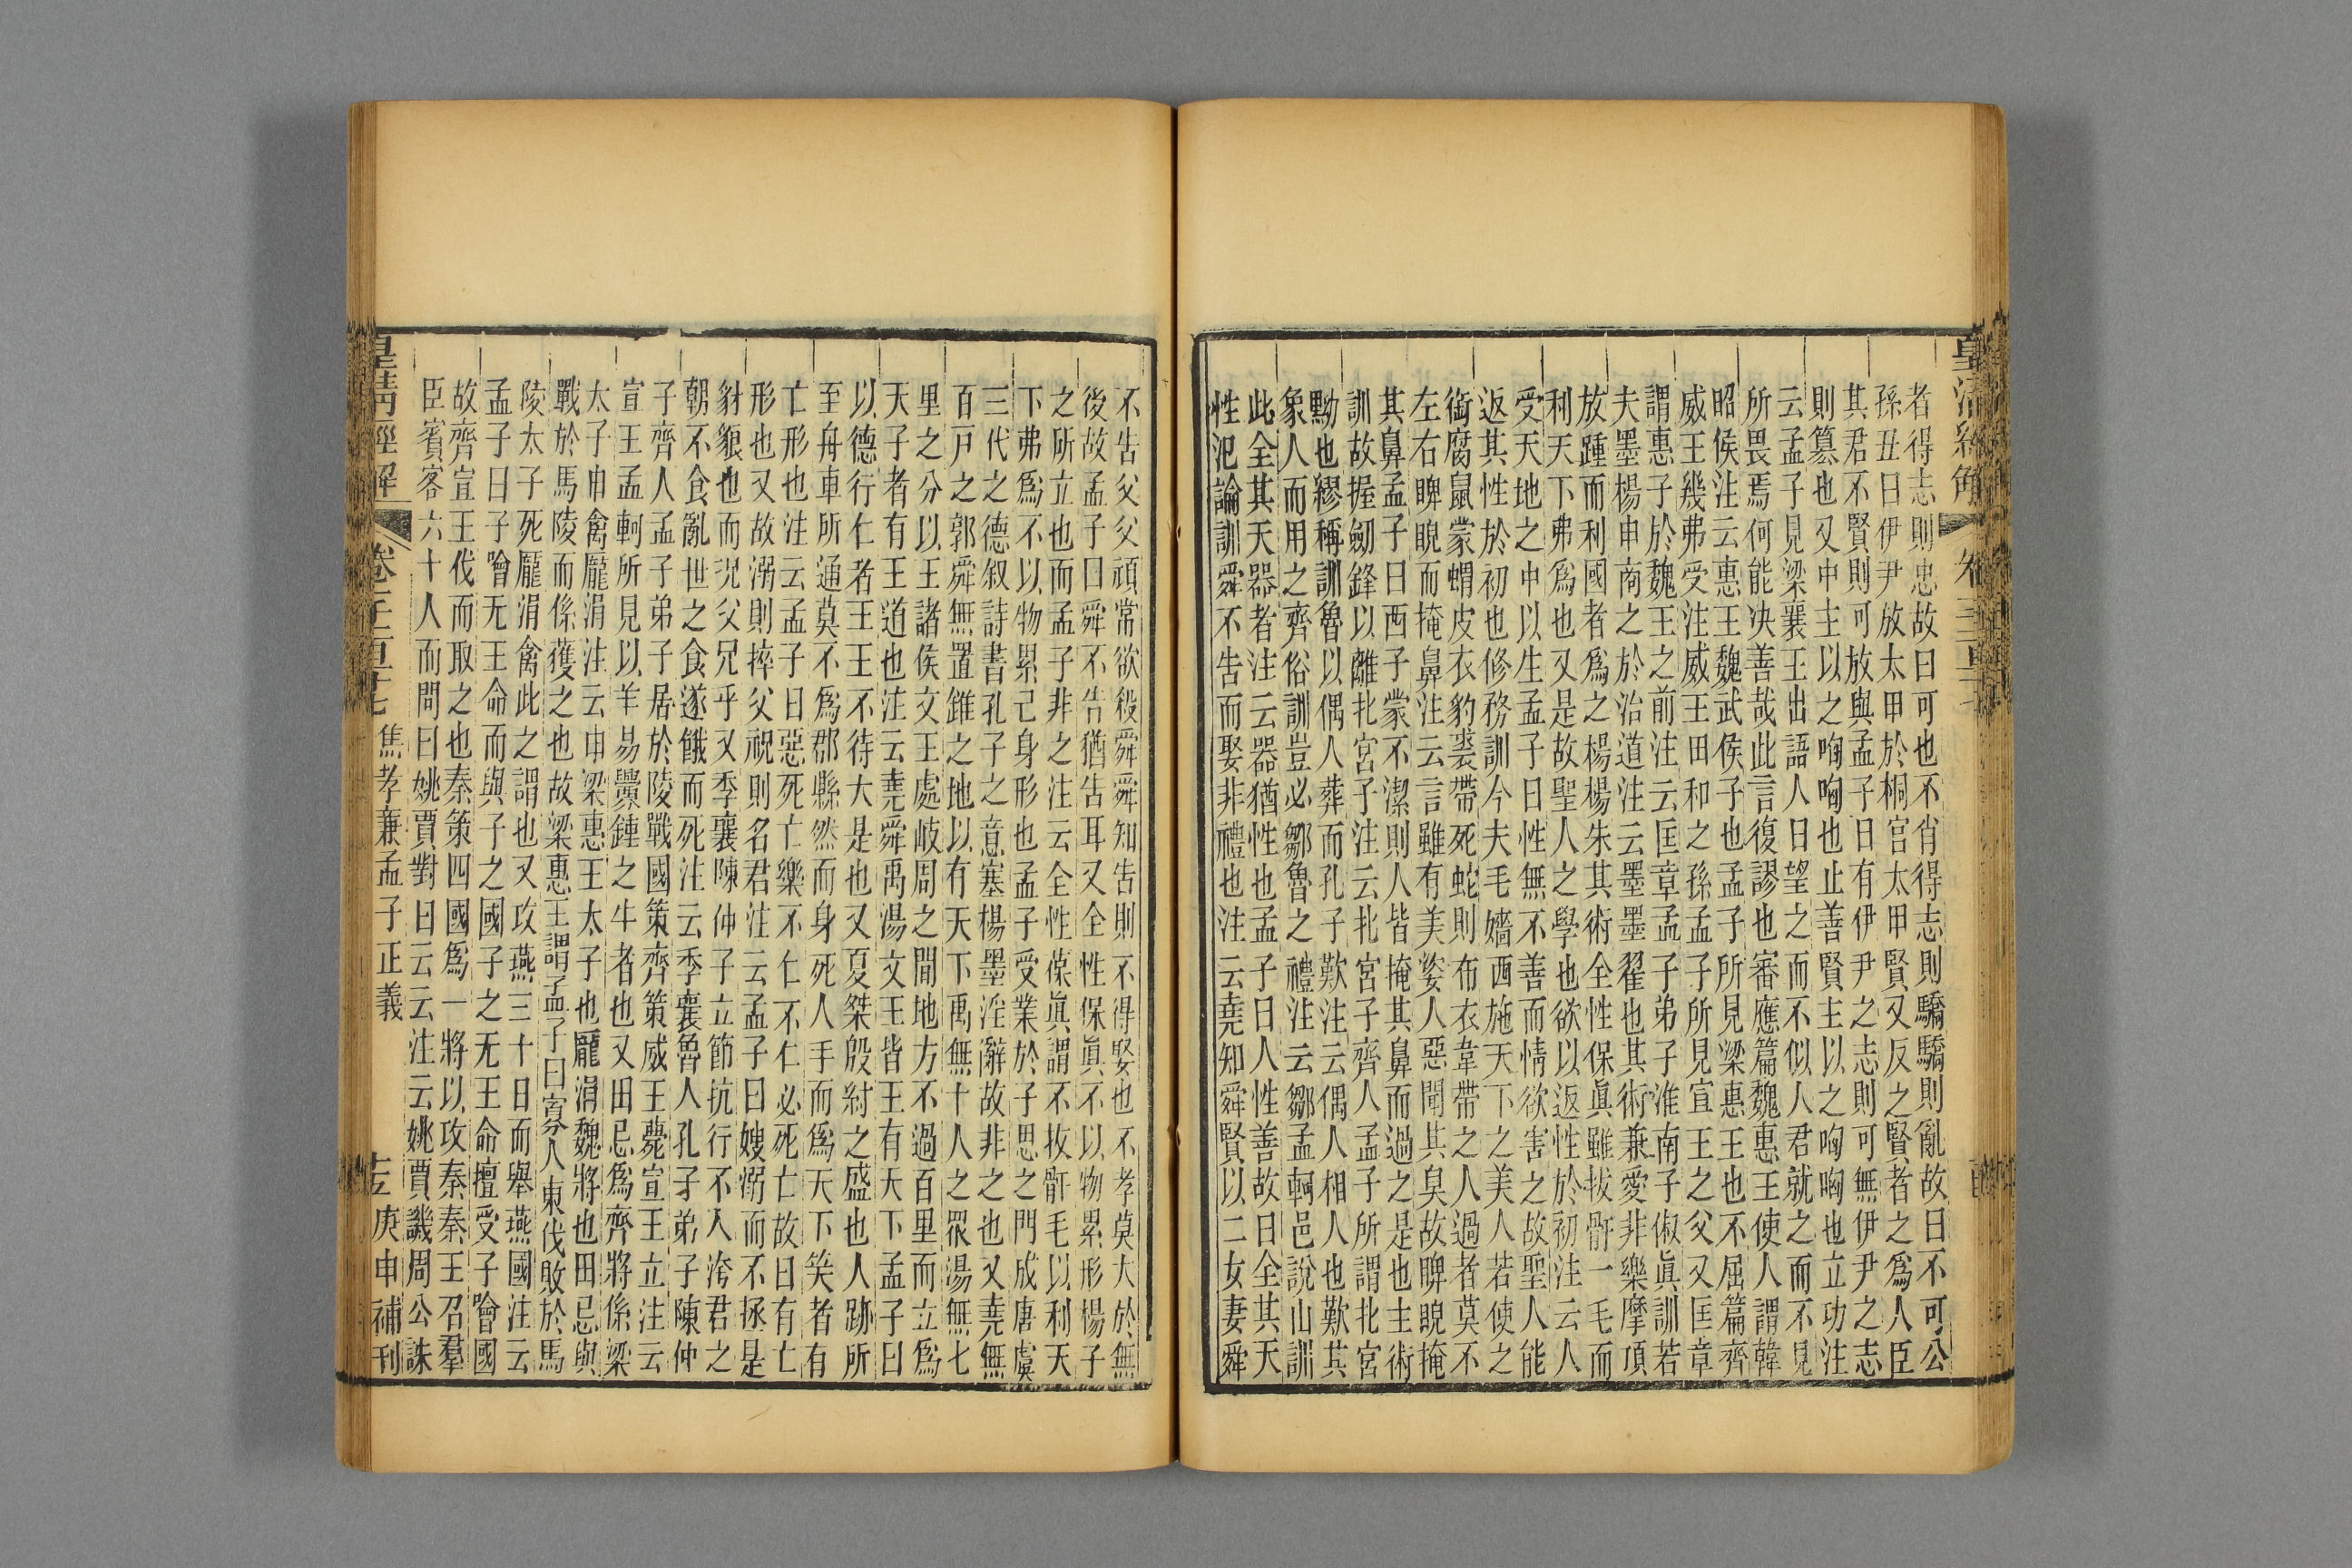 皇清經解
者得志則忠故曰可也不肖得志則驕驕則亂故曰不可公
孫丑曰伊尹放太甲於桐宮太甲賢又反之賢者之為人臣
其君不賢則可放與孟子曰有伊尹之志則可無伊尹之志
則篡也又中主以之㕼㕼也止善賢主以之㕼㕼也立功注
云孟子見梁襄王出語人曰望之而不似人君就之而不見
所畏焉何能决善哉此言復謬也審應篇魏惠王使人謂韓
昭侯注云惠王魏武侯子也孟子所見梁惠王也不屈篇齊
威王幾弗受注威王田和之孫孟子所見宣王之父又匡章
謂惠子於魏王之前注云匡章孟子弟子淮南子俶眞訓若
夫墨楊申商之於治道注云墨墨翟也其術兼愛非樂摩頂
放踵而利國者爲之楊楊朱其術全性保眞雖拔骭一毛而
利天下弗爲也又是故聖人之學也欲以返性於初注云人
受天地之中以生孟子曰性無不善而情欲害之故聖人能
返其性於初也修務訓今夫毛嬙西施天下之美人若使之
銜腐鼠蒙蝟皮衣豹裘帶死蛇則布衣韋帶之人過者莫不
左右睥睨而掩鼻注云言雖有美姿人惡聞其臭故睥睨掩
其鼻孟子曰西子蒙不潔則人皆掩其鼻而過之是也主術
訓故握劒鋒以離北宮子注云北宮子齊人孟子所謂北宮
黝也繆稱訓魯以偶人葬而孔子歎注云偶人相人也歎其
象人而用之齊俗訓豈必鄒魯之禮注云鄒孟軻邑說山訓
此全其天器者注云器猶性也孟子曰人性善故曰全其天
性氾論訓舜不告而娶非禮也注云堯知舜賢以二女妻舜
不告父父頑常欲殺舜舜知告則不得娶也不孝莫大於無
後故孟子曰舜不告猶告耳又全性保眞不以物累形楊子
之所立也而孟子非之注云全性葆眞謂不拔骭毛以利天
下弗爲不以物累己身形也孟子受業於子思之門成唐虞
三代之德叙詩書孔子之意塞楊墨淫辭故非之也又堯無
百戸之郭舜無置錐之地以有天下禹無十人之眾湯無七
里之分以王諸侯文王處岐周之閒地方不過百里而立爲
天子者有王道也注云堯舜禹湯文王皆王有天下孟子曰
以德行仁者王王不待大是也又夏桀殷紂之盛也人跡所
至舟車所通莫不爲郡縣然而身死人手而爲天下笑者有
亡形也注云孟子曰惡死亡樂不仁不仁必死亡故曰有亡
形也又故溺則捽父祝則名君注云孟子曰嫂溺而不拯是
豺狼也而況父兄乎又季襄陳仲子立節抗行不入洿君之
朝不食亂世之食遂餓而死注云季襄魯人孔子弟子陳仲
子齊人孟子弟子居於陵戰國策齊策威王薨宣王立注云
宣王孟軻所見以羊易釁鍾之牛者也又田忌爲齊將係梁
太子申禽龐涓注云申梁惠王太子也龐涓魏將也田忌與
戰於馬陵而係獲之也故梁惠王謂孟子曰寡人東伐敗於馬
陵太子死龐涓禽此之謂也又攻燕三十日而舉燕國注云
孟子曰子噲无王命而與子之國子之无王命擅受子噲國
故齊宣王伐而取之也秦策四國爲一將以攻秦秦王召羣
臣賓客六十人而問曰姚賈對曰云云注云姚賈譏周公誅
皇清經解 卷一千一百十七 焦孝廉孟子正義 庚申補刊